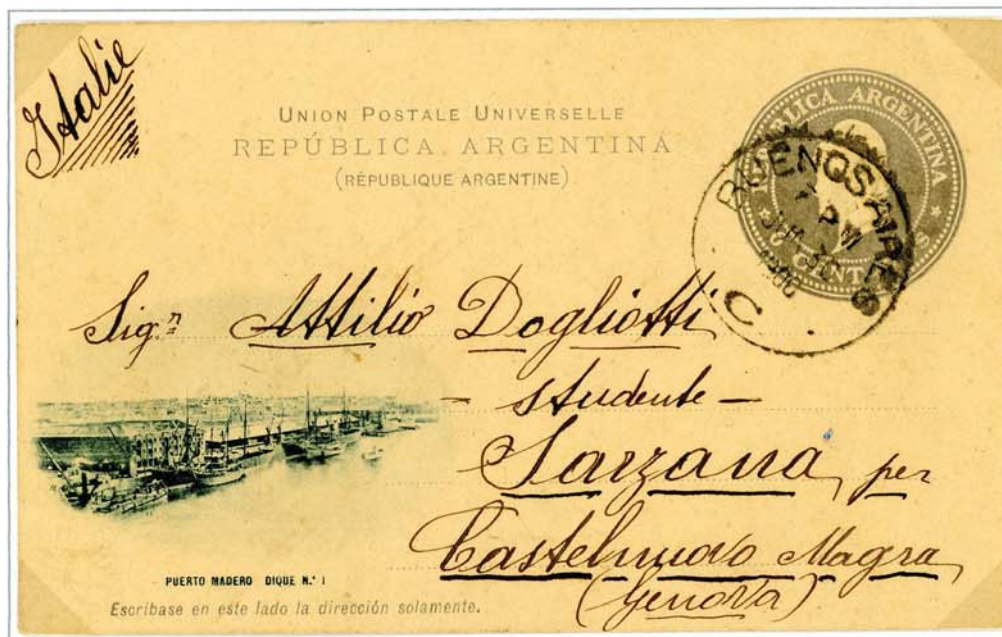 Italie
UNION POSTALE UNIVERSELLE
REPÚBLICA ARGENTINA
(RÉPUBLIQUE ARGENTINE)
REPÚBLICA ARGENTINA
CENTAVOS
BUENOS AIRES
PM
30
1900
C
Sigⁿ Attilio Dogliotti
- studente -
Sarzana, per
Castelnuovo Magra
(Genova)
PUERTO MADERO DIQUE N.º 1
Escríbase en este lado la dirección solamente.